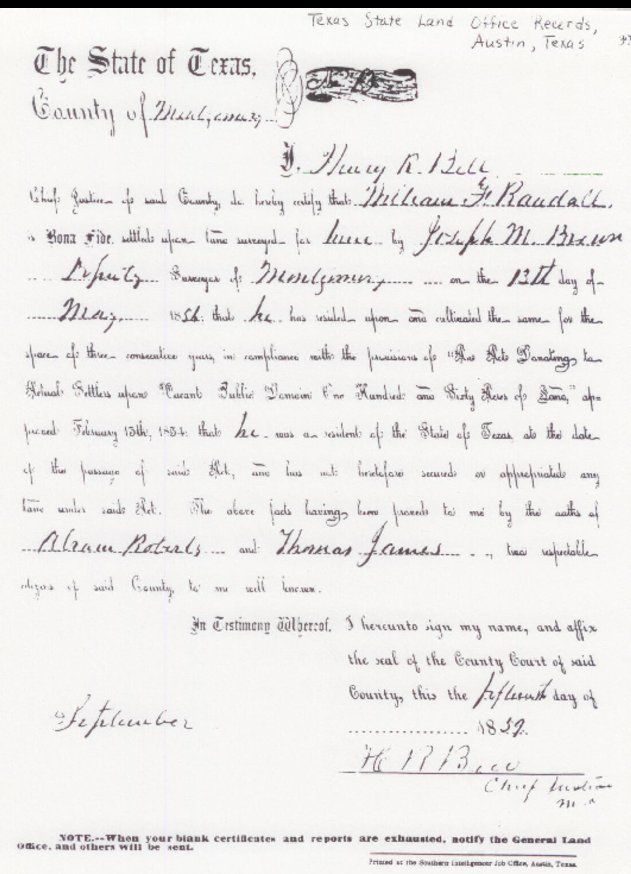 Texas State Land Office Records,
Austin, Texas
The State of Texas,
County of Montgomery
I, Henry R. Bell
Chief Justice of said County, do hereby certify that William F. Randall
is Bona Fide settled upon land surveyed for him by Joseph M. Brown
Deputy Surveyor of Montgomery on the 13th day of
May 1856 that he has resided upon and cultivated the same for the
space of three consecutive years, in compliance with the provisions of "An Act Donating to
Actual Settlers upon Vacant Public Domain One Hundred and Sixty Acres of Land," ap-
proved February 13th, 1854: that he was a resident of the State of Texas at the date
of the passage of said Act, and has not heretofore secured or appropriated any
land under said Act. The above facts having been proved to me by the oaths of
Abram Roberts and Thomas James, two respectable
citizens of said County, to me well known.
In Testimony Whereof, I hereunto sign my name, and affix
the seal of the County Court of said
County, this the fifteenth day of
September 1859.
H R Bell
Chief Justice
NOTE.--When your blank certificates and reports are exhausted, notify the General Land
Office, and others will be sent.
Printed at the Southern Intelligencer Job Office, Austin, Texas.